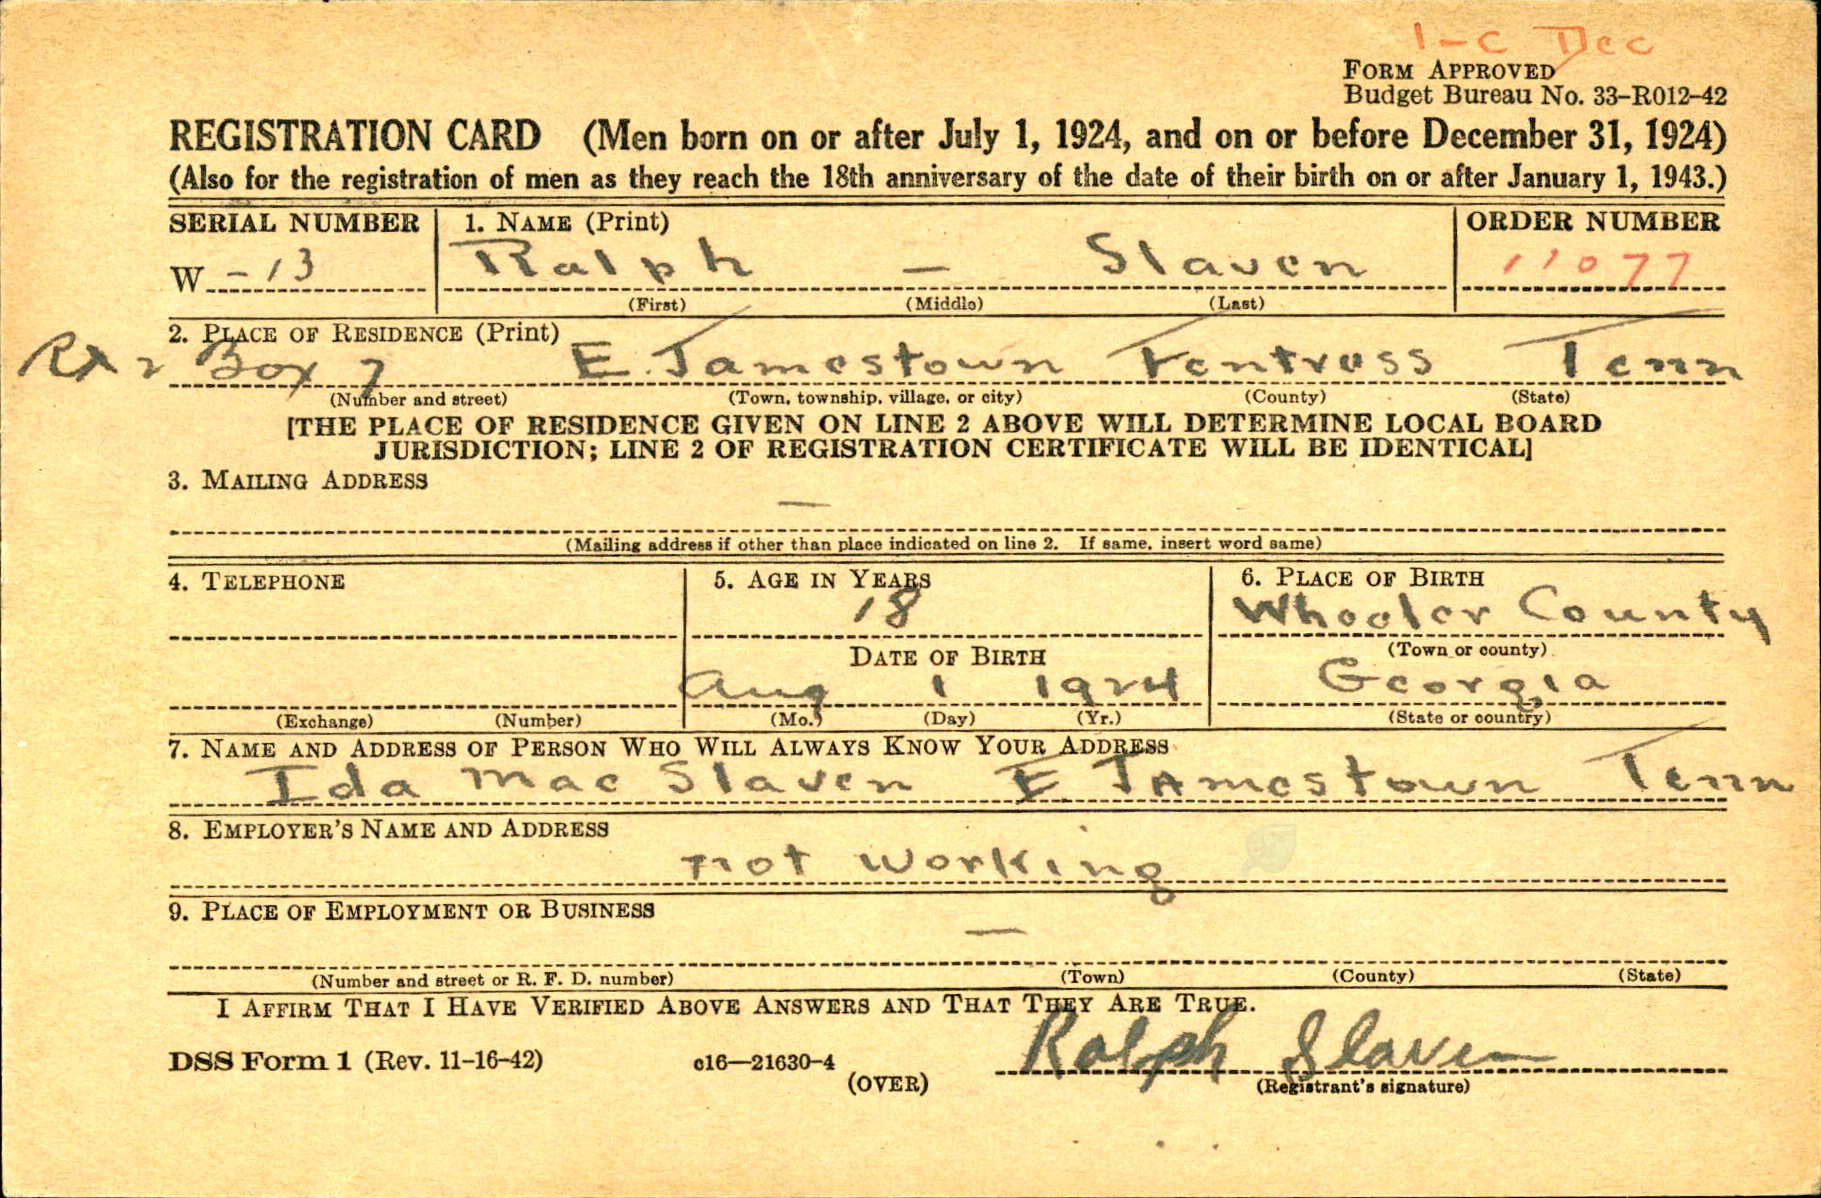 1-C Dec
FORM APPROVED
Budget Bureau No. 33-R012-42
REGISTRATION CARD (Men born on or after July 1, 1924, and on or before December 31, 1924)
(Also for the registration of men as they reach the 18th anniversary of the date of their birth on or after January 1, 1943.)
SERIAL NUMBER 1. NAME (Print) ORDER NUMBER
W -13 Ralph — Slaven 11077
(First) (Middle) (Last)
2. PLACE OF RESIDENCE (Print)
Rt 2 Box 7 E. Jamestown Fentress Tenn
(Number and street) (Town, township, village, or city) (County) (State)
[THE PLACE OF RESIDENCE GIVEN ON LINE 2 ABOVE WILL DETERMINE LOCAL BOARD
JURISDICTION; LINE 2 OF REGISTRATION CERTIFICATE WILL BE IDENTICAL]
3. MAILING ADDRESS
—
(Mailing address if other than place indicated on line 2. If same, insert word same)
4. TELEPHONE 5. AGE IN YEARS 6. PLACE OF BIRTH
18 Wheeler County
DATE OF BIRTH (Town or county)
Aug 1 1924 Georgia
(Exchange) (Number) (Mo.) (Day) (Yr.) (State or country)
7. NAME AND ADDRESS OF PERSON WHO WILL ALWAYS KNOW YOUR ADDRESS
Ida Mae Slaven E JAmestown Tenn
8. EMPLOYER'S NAME AND ADDRESS
not working
9. PLACE OF EMPLOYMENT OR BUSINESS
—
(Number and street or R. F. D. number) (Town) (County) (State)
I AFFIRM THAT I HAVE VERIFIED ABOVE ANSWERS AND THAT THEY ARE TRUE.
DSS Form 1 (Rev. 11-16-42) c16—21630-4 Ralph Slaven
(OVER) (Registrant's signature)